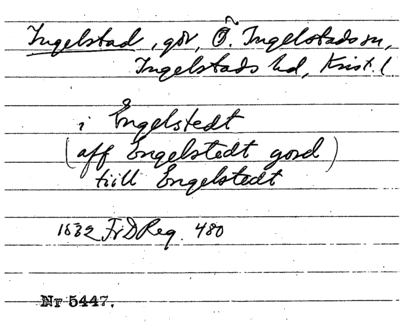 Ingelstad, går, Ö. Ingelstads sn,
Ingelstads hd, Krist. l
i Engelstedt
(aff Engelstedt gord)
till Engelstedt
1632 FrDReg. 480
Nr 5447.